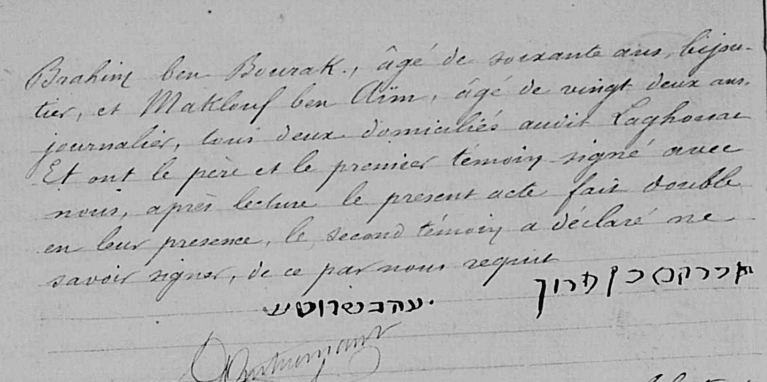 Brahim ben Bourak., âgé de soixante ans, bijou-
tier, et Maklouf ben Aïm, âgé de vingt deux ans,
journalier, tous deux domiciliés audit Laghouat
Et ont le père et le premier témoin signé avec
nous, après lecture le présent acte fait double
en leur présence, le second témoin a déclaré ne
savoir signer, de ce par nous requis